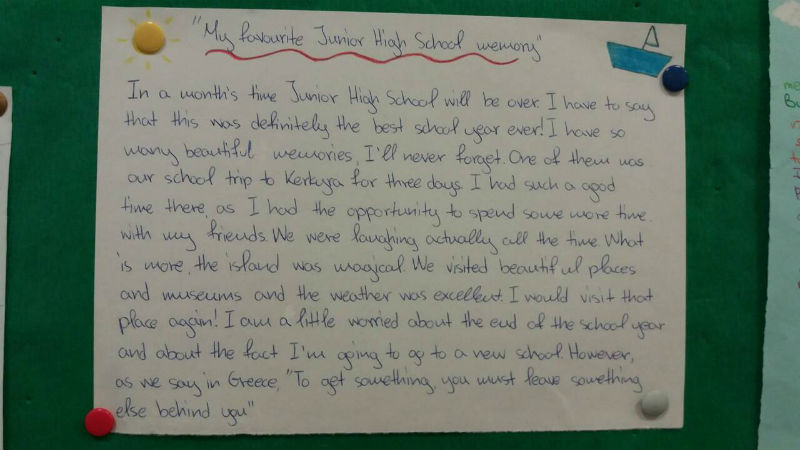 "My favourite Junior High School memory"
In a month's time Junior High School will be over. I have to say
that this was definitely the best school year ever! I have so
many beautiful memories, I'll never forget. One of them was
our school trip to Kerkyra for three days. I had such a good
time there, as I had the opportunity to spend some more time
with my friends. We were laughing actually all the time. What
is more, the island was magical. We visited beautiful places
and museums and the weather was excellent. I would visit that
place again! I am a little worried about the end of the school year
and about the fact I'm going to go to a new school. However,
as we say in Greece, "To get something, you must leave something
else behind you"